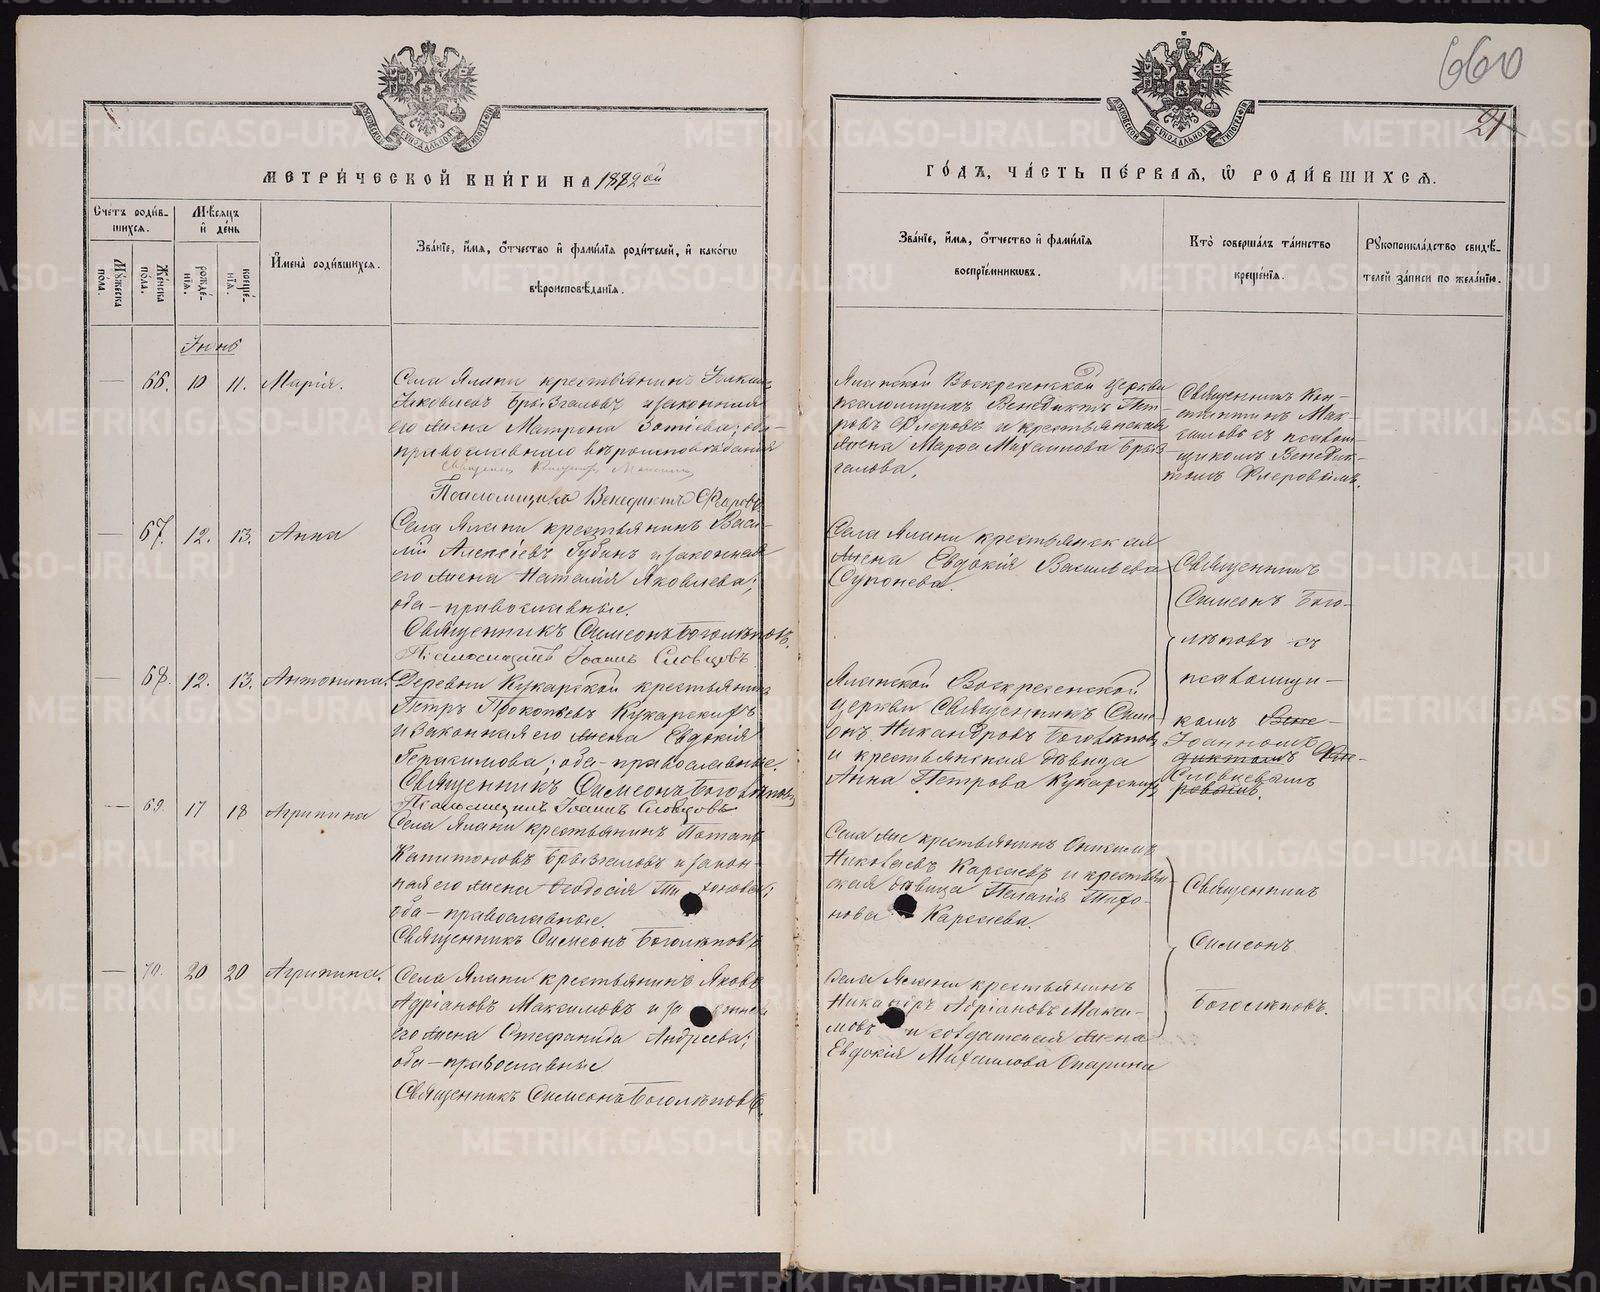 660
21
МЕТРИ́ЧЕСКОЙ КНИ́ГИ НА 1882 ой
ГО́ДЪ, ЧА́СТЬ ПЕ́РВАЯ, Ѿ РОДИ́ВШИХСЯ.
Счетъ роди́в-
шихся.
Мꙋ́жеска
по́ла.
Же́нска
по́ла.
Мѣ́сяцъ
и҆ де́нь
рожде́-
нїя.
креще́-
нїя.
И҆мена̀ роди́вшихся.
Зва́нїе, и҆́мя, ѻ҆́тчество и҆ фами́лїя роди́телей, и҆ како́гѡ
вѣроисповѣ́данїя.
Зва́нїе, и҆́мя, ѻ҆́тчество и҆ фами́лїя
воспрїе́мникѡвъ.
Кто̀ соверша́лъ та́инство
креще́нїя.
Рꙋкоприкла́дство свидѣ́-
телей за́писи по жела́нїю.
Іюнь
66. 10 11. Марія.
Села Ялани крестьянинъ
Яковлевъ Брызгаловъ и законная
его жена Матрона Зотіева; оба
православнаго вѣроисповѣданія
Псаломщикъ Венедиктъ Флеровъ
Яланской Воскресенской церкви
псаломщикъ Венедиктъ Пет-
ровъ Флеровъ и крестьянская
жена Марѳа Михаилова Брыз-
галова.
Священникъ Кон-
стантинъ Мак-
съ псалом-
щикомъ Венедик-
томъ Флеровымъ.
67. 12. 13. Анна
Села Ялани крестьянинъ Васи-
лій Алексіевъ Губинъ и законная
его жена Наталія Яковлева;
оба - православные.
Священникъ Симеонъ Боголѣповъ.
Псаломщикъ Іоаннъ Словцовъ
Села Ялани крестьянская
жена Евдокія Васильева
Супонева.
Священникъ
Симеонъ Бого-
лѣповъ съ
псаломщи-
комъ Вене-
Іоанномъ
диктомъ Фле-
Словцевымъ
ровымъ.
68. 12. 13. Антонина.
Деревни Кукарской крестьянинъ
Петръ Прокопьевъ Кукарскихъ
и законная его жена Евдокія
Герасимова; оба - православные.
Священникъ Симеонъ Боголѣповъ
Псаломщикъ Іоаннъ Словцовъ
Яланской Воскресенской
церкви Священникъ Симе-
онъ Никандровъ Боголѣповъ
и крестьянская дѣвица
Анна Петрова Кукарскихъ
69 17 18 Агрипина
Села Ялани крестьянинъ Потапъ
Капитоновъ Брызгаловъ и закон-
ная его жена Ѳеодосія
оба - православные.
Священникъ Симеонъ Боголѣповъ
Села крестьянинъ
Николаевъ Каргаевъ и крестьян-
ская дѣвица Пелагія Тихо-
нова Каргаева.
Священникъ
Симеонъ
Боголѣповъ.
70. 20 20 Агрипина.
Села Ялани крестьянинъ Яковъ
Адріановъ Максимовъ и
его жена Стефанида Андреева;
оба - православные
Священникъ Симеонъ Боголѣповъ.
Села Ялани крестьянинъ
Адріановъ Макси-
мовъ и солдатская жена
Евдокія Михаилова Опарина
METRIKI.GASO-URAL.RU